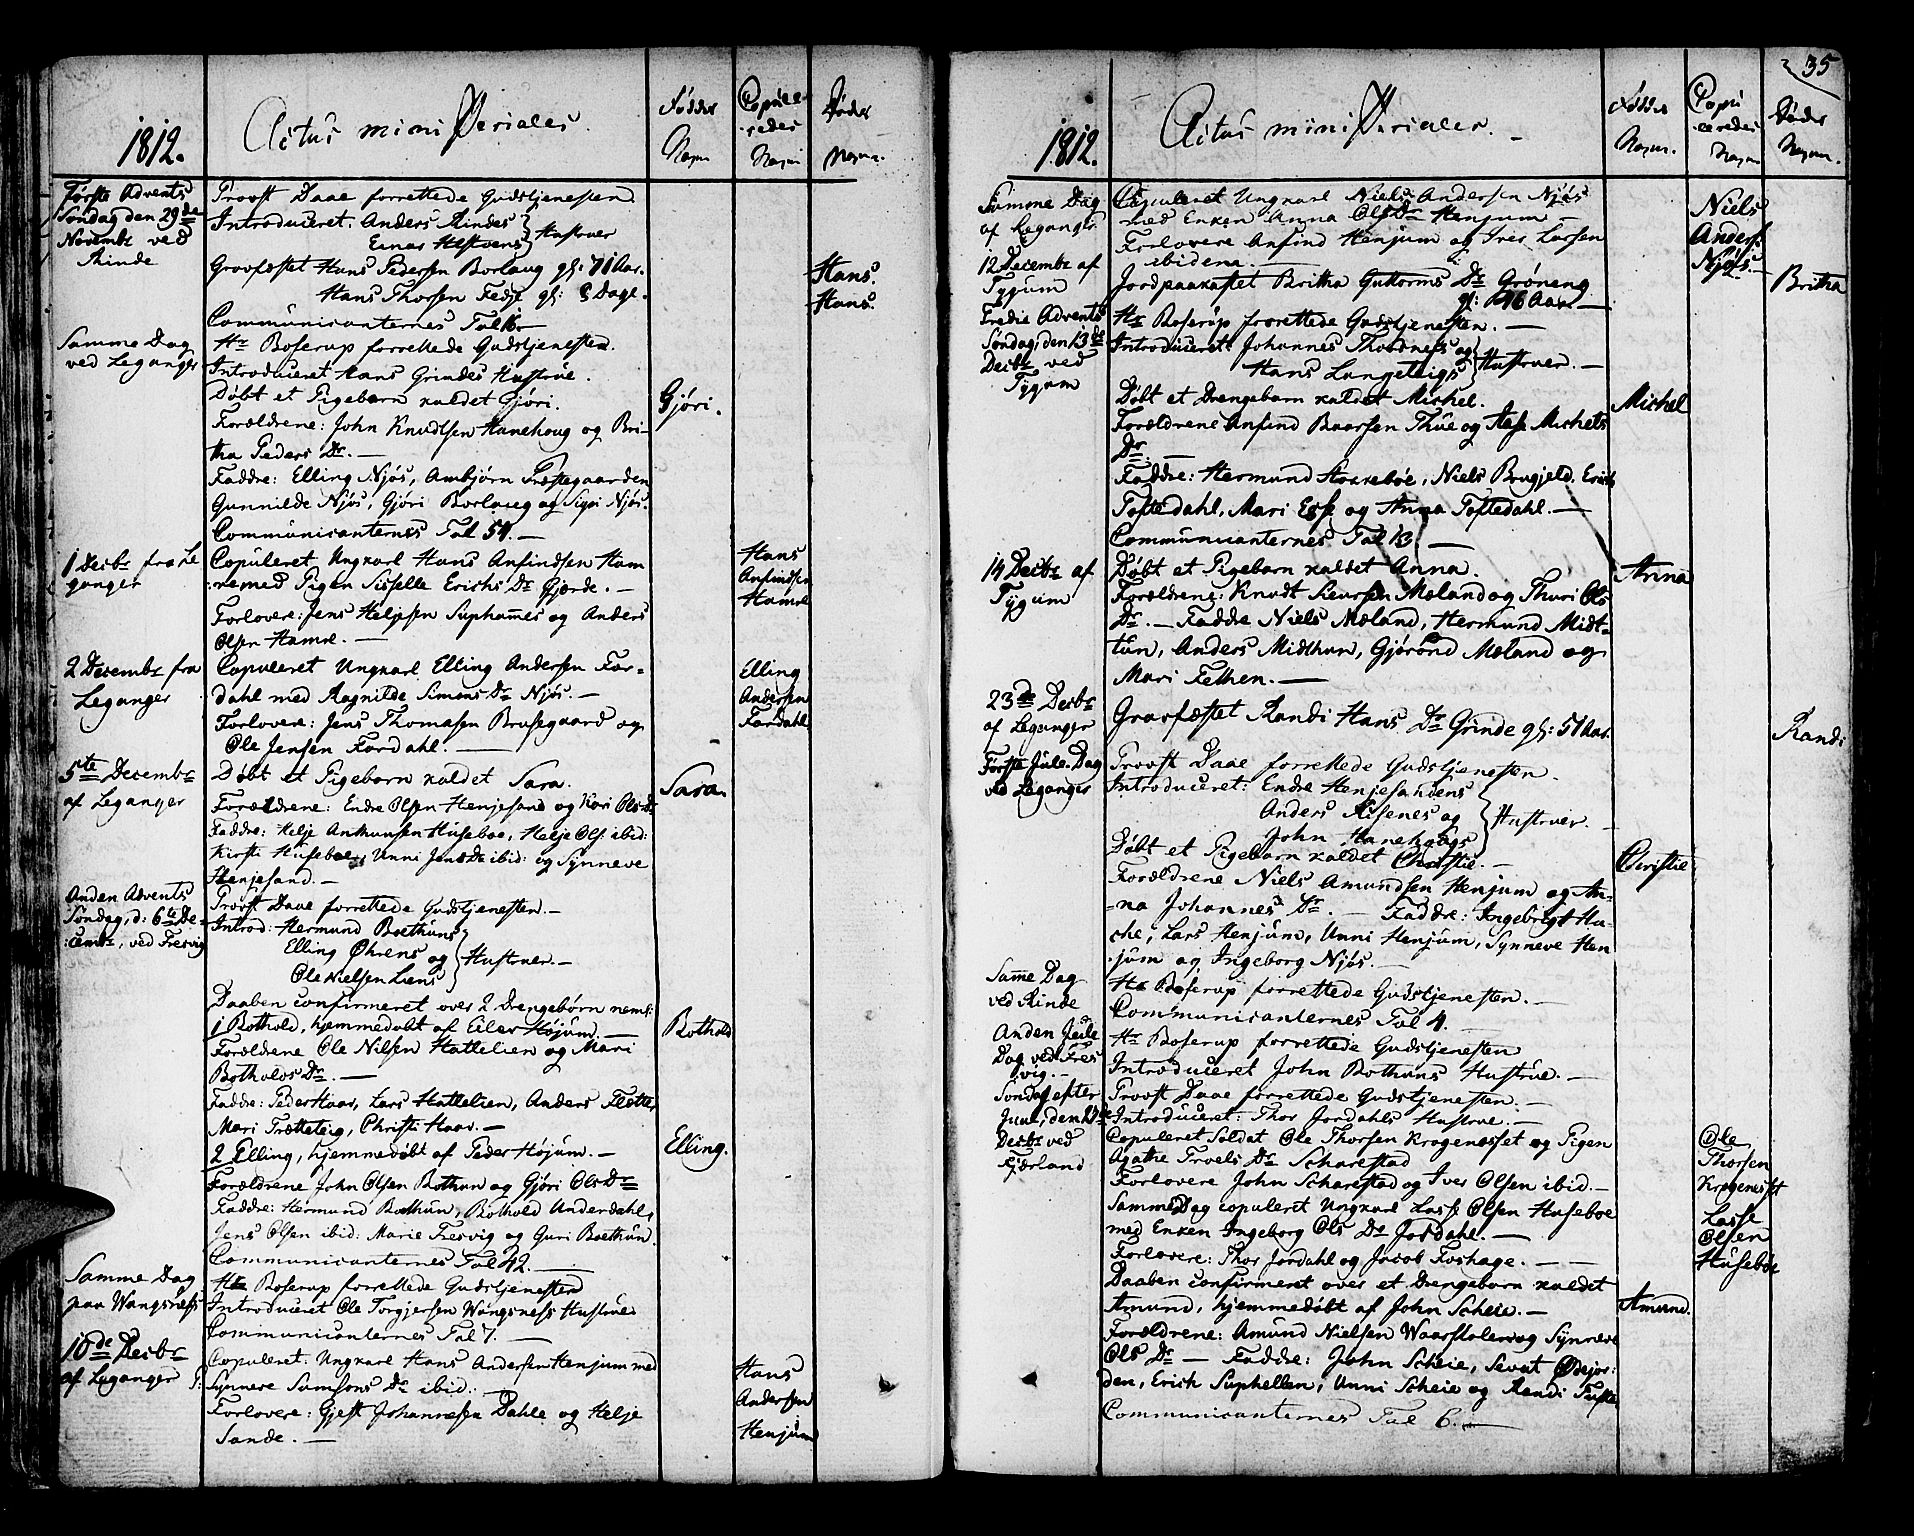 1812.
Actus ministeriales.
Fødder
Copule-
redes
Døder
Første Advents
Søndag den 29de
Novembr ved
Rinde
Provst Daae forrettede Gudstjenesten.
Introduceret: Anders Rindes
Einar Hustruer
Gravfæstet Hans Pedersen Borlaug gl: 71 Aar.
Hans.
Hans Thorsen Fedje gl: 8 Dage.
Hans.
Communicanternes Tal
Samme Dag
ved Leganger
Hr Boserup forrettede Gudstjenesten.
Introduceret Hans Grindes Hustrue.
Døbt et Pigebarn kaldet Gjøri.
Gjøri.
Forældrene: John Knudtsen Hanehoug og Bri-
tha Peders Dr. —
Faddre: Elling Njøs, Ambjørn Præstegaarden
Gunnilde Njøs, Gjøri Borlaug og Sigri Njøs.
Communicanternes Tal 54. —
1 Decbr fra Le
ganger
Copuleret Ungkarl Hans Anfindsen Ham
re med Pigen Sisselle Erichs Dr Gjerde. —
Forlovere: Jens Heljesen Suphammes og Anders
Olsen Hamre. —
Hans
Anfindsen
Hamre
2 Decembr fra
Leganger
Copuleret Ungkarl Elling Andersen For-
dahl med Ragnilde Simons Dr Njøs. —
Forlovere: Jens Thomasen Brusegaard og
Ole Jensen Fordahl. —
Elling
Andersen
Fordahl
5te Decembr
af Leganger
Døbt et Pigebarn kaldet Sara.
Sara.
Forældrene: Endre Olsen Henjesand og Kari Ols Dr
Faddre: Helje Anthunsen Huseboe, Helje Ols. ibid:
Kirsti Huseboe, Unni Jens Dr ibid: og Synneve
Henjesand. —
Anden Advents
Søndag, d: 6te De-
cembr, ved Fresvig
Provst Daae forrettede Gudstjenesten. —
Introd: Hermund Boethuns
Elling Øhrens og
Ole Nielsen Liens
Hustruer. —
Daaben confirmeret over 2 Drengebørn neml:
1 Bothold, hjemmedøbt af Eilev Højum. —
Bothold
Forældrene Ole Nilsen Hattelien og Mari
Botholds Dr. —
Faddre: Peder Haar, Lars Hattelien, Anders Flotte,
Mari Trætteteig, Christi Haar. —
2 Elling, hjemmedøbt af Peder Højum. —
Elling.
Forældrene John Olsen Bothun og Gjøri Ols Dr
Faddre: Hermund Bothun, Bothold Underdahl,
Jens Olsen ibid: Marie Fresvig og Guri Boethun.
Communicanternes Tal 42. —
Samme Dag
paa Wangsness
Hr Boserup forrettede Gudstjenesten
Introduceret Ole Torgjersen Wangsness Hustrue
Communicanternes Tal 7. —
10de Decbr
af Leganger
Copuleret. Ungkarl Hans Andersen Henjum med
P: Synneve Samsons Dr ibid. —
Forlovere: Gjest Johannesen Dahle og Helje
Sande. —
Hans
Andersen
Henjum
35
1812.
Actus ministeriales. —
Fødder
Copu
leredes
Døder
Samme Dag
af Leganger
Copuleret Ungkarl Niels Andersen Njøs
med Enken Anna Ols Dr Henjum —
Forlovere Anfind Henjum og Iver Larsen
ibidem. —
Niels
Anders:
Njøs.
12 Decembr af
Tygum
Jordpaakastet Britha Guttorms Dr Grøneng
gl: 76 Aar —
Britha
Tredie Advents
Søndag, den 13de
Decbr ved
Tygum
Hr Boserup forrettede Gudstjenesten. —
Introduceret: Johannes Thordness og
Hans Langeteigs
Hustruer. —
Døbt et Drengebarn kaldet Michel.
Michel
Forældrene Anfind Baarsen Thue og Aase Michels
Dr. —
Faddre: Hermund Hovseboe, Niels Brugjeld, Erich
Toftedahl, Mari Esse og Anna Toftedahl. —
Communicanternes Tal 13 —
14 Decbr af
Tygum
Døbt et Pigebarn kaldet Anna.
Anna
Forældrene: Knudt Siursen Mæland og Thuri Ols
Dr. — Faddre Niels Mæland, Hermund Midt-
tun, Anders Midthun, Gjørond Mæland og
Mari Felhen. —
23de Decbr
af Leganger
Gravfæstet Randi Hans Dr Grinde gl: 51 Aar.
Randi
Første Jule-Dag
ved Leganger
Provst Daae forrettede Gudstjenesten.
Introduceret: Endre Henjesandens
Anders Risenes og
John Hanehougs
Hustruer. —
Døbt et Pigebarn kaldet Christie. —
Christie
Forældrene Niels Amundsen Henjum og An-
na Johannes Dr. — Faddre: Ingebrigt Hu-
che, Lars Henjum, Unni Henjum, Synneve Hen
jum og Ingeborg Njøs. —
Samme Dag
ved Rinde
Hr Boserup forrettede Gudstjenesten. —
Communicanternes Tal 4. —
Anden Jule
Dag ved Fres
vig. —
Hr Boserup forrettede Gudstjenesten
Introduceret John Bothuns Hustrue. —
Søndag efter
Juul, den 27de
Decbr ved
Fjærland
Provst Daae forrettede Gudstjenesten. —
Introduceret: Thor Jordahls Hustrue. —
Copuleret Soldat Ole Thorsen Krogenesset og Pigen
Agathe Troels Dr Scharestad
Forlovere John Scharestad og Iver Olsen ibid. —
Ole
Thorsen
Krogenesset
Samme Dag copuleret Ungkarl Lasse Olsen Huseboe
med Enken Ingeborg Ols Dr Jordahl. —
Forlovere: Thor Jordahl og Jacob Foshage. —
Lasse
Olsen
Huseboe
Daaben confirmeret over et Drengebarn kaldet
Amund, hjemmedøbt af John Scheie. —
Amund.
Forældrene: Amund Nielsen Waarstolen og Synneve
Ols Dr — Faddre: John Scheie, Sevat Ødejor-
den, Erich Suphellen, Unni Scheie og Randi Tufte
Communicanternes Tal 6. —